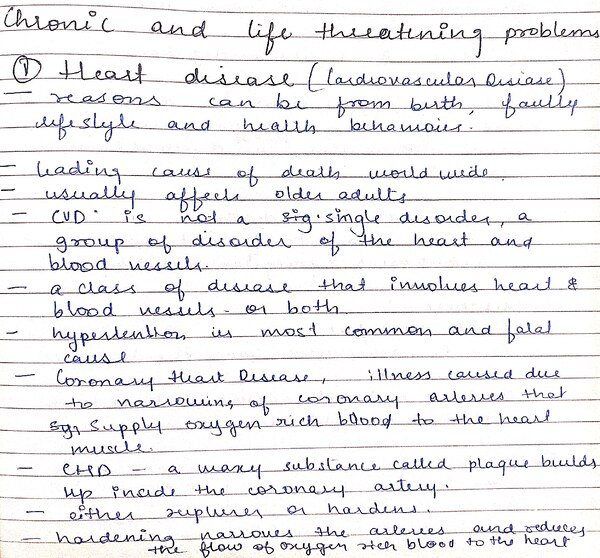 Chronic and life threatening problems
① Heart disease (Cardiovascular Disease)
- reasons can be from birth, faulty
lifestyle and health behaviours.
- leading cause of death world wide.
- usually affects older adults
- CVD is not a sig. single disorder, a
group of disorder of the heart and
blood vessels.
- a class of disease that involves heart &
blood vessels - or both
- hypertention is most common and fatal
cause
- Coronary Heart Disease, illness caused due
to narrowing of coronary arteries that
supply oxygen rich blood to the heart
muscle.
- CHD - a waxy substance called plaque builds
up inside the coronary artery.
- either ruptures or hardens.
- hardening narrows the arteries and reduces
the flow of oxygen rich blood to the heart